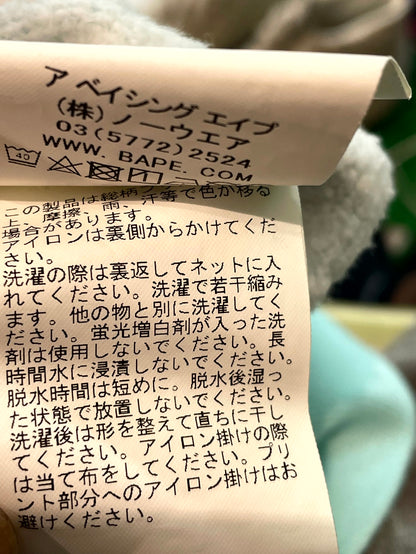 ア ベイシング エイプ
(株) ノーウエア
03(5772)2524
WWW. BAPE. COM
40
この製品は総柄
摩擦、雨、汗等で色が移る
場合があります。
アイロンは裏側からかけてくだ
さい。
洗濯の際は裏返してネットに入
れてください。洗濯で若干縮み
ます。他の物と別に洗濯してく
ださい。蛍光増白剤が入った洗
剤は使用しないでください。長
時間水に浸漬しないでください。
脱水時間は短めに。脱水後湿っ
た状態で放置しないでください。
洗濯後は形を整えて直ちに干し
てください。アイロン掛けの際
は当て布をしてください。プリ
ント部分へのアイロン掛けはお
避けください。